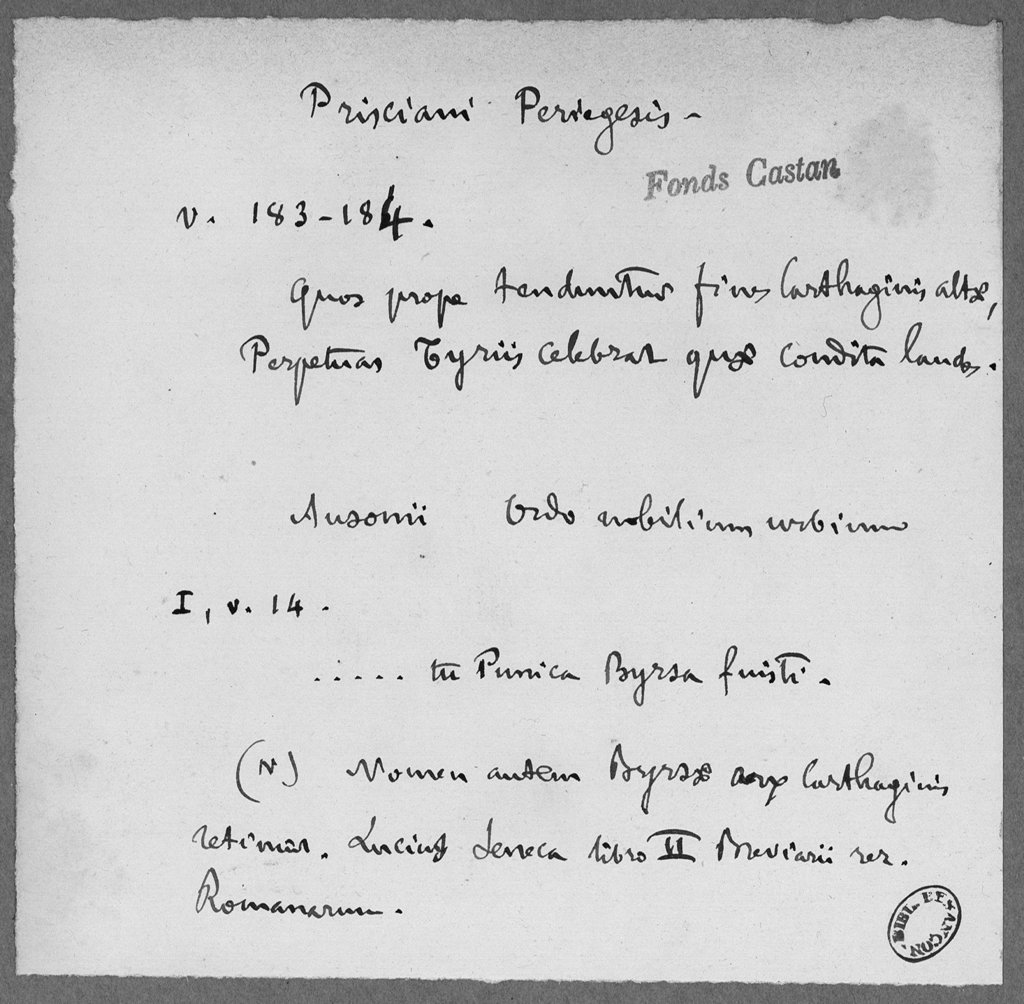 Prisciani Periegesis -
Fonds Castan
v. 183-184.
Quos prope tenduntur fines Carthaginis altæ,
Perpetuas Tyriis celebrat quæ condita laudes.
Ausonii Ordo nobilium urbium
I, v. 14.
..... tu Punica Byrsa fuisti.
(N) Nomen autem Byrsæ arx Carthaginis
retinuit. Lucius Seneca libro II Breviarii rer.
Romanarum.
BIBL. BESANÇON